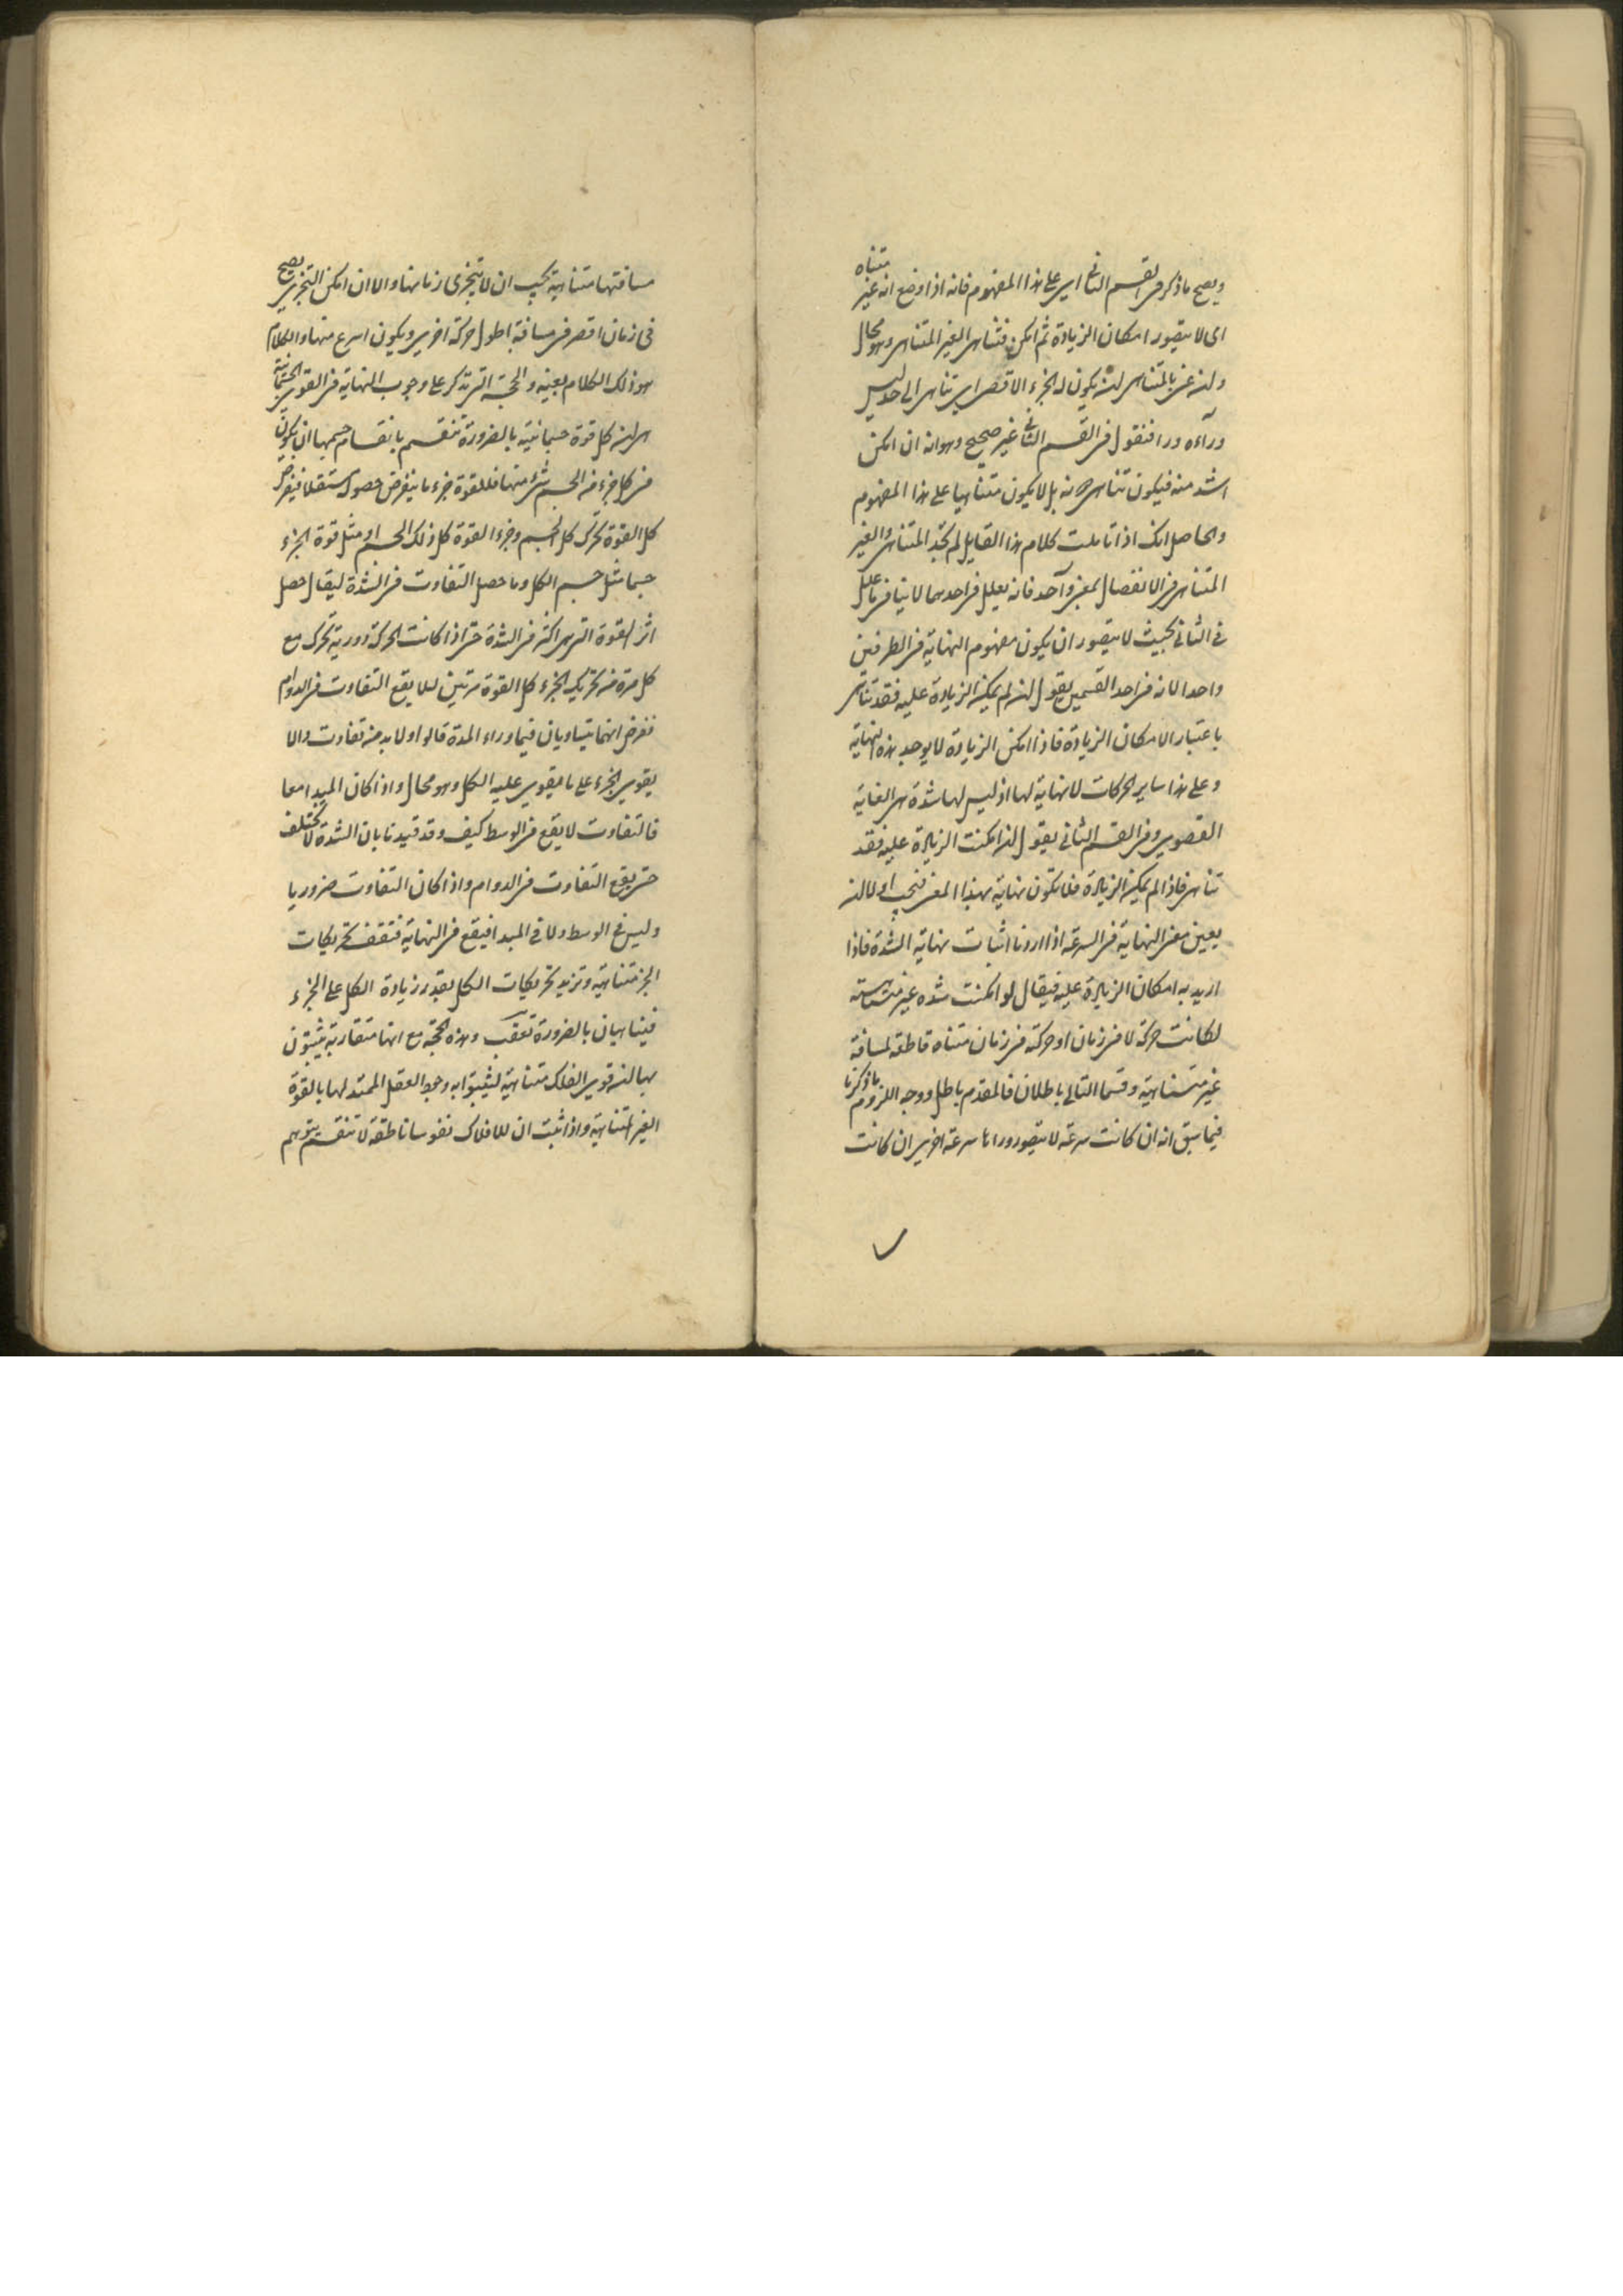 ويصح ما ذكر فى القسم الثانى اى على هذا المفهوم فانه اذا وضع انه غير متناه
اى لا يتصور امكان الزيادة ثم امكن فتناهى الغير المتناهى وهو محال
وان عنى بالمتناهى ان يكون له الجزء الاقصى اى تناهى الى حد ليس
وراءه وراء فنقول فى القسم الثانى غير صحيح وهو انه ان امكن
اشد منه فيكون تناهى لانه بل لا يكون متناهيا على هذا المفهوم
والحاصل انك اذا تاملت كلام هذا القايل لم تجد المتناهى والغير
المتناهى فى الانفصال بمعنى واحد فانه يعلل فى احدهما لا ينافى ما علل
فى الثانى بحيث لا يتصور ان يكون مفهوم النهاية فى الطرفين
واحدا لانه فى احد القسمين يقول ان لم يمكن الزيادة عليه فقد تناهى
باعتبار الامكان الزيادة فاذا امكن الزيادة لا يوجد هذه النهاية
وعلى هذا ساير الحركات لا نهاية لها اذ ليس لها شدة هى الغاية
القصوى وفى القسم الثانى يقول ان امكنت الزيادة عليه فقد
تناهى فاذا لم يمكن الزيادة فلا يكون نهاية بهذا المعنى فيجب اولا ان
يعين معنى النهاية فى السرعة اذا اردنا اثبات نهاية الشدة فاذا
اريد به امكان الزيادة عليه فيقال لو امكنت شدة غير متناهية
لكانت حركة لا فى زمان او حركة فى زمان متناه قاطعة لمسافة
غير متناهية وقسما التالى باطلان فالمقدم باطل ووجه اللزوم ما ذكرنا
فيما سبق انه ان كانت سرعة لا يتصور وراءها سرعة اخرى ان كانت
مسافتها متناهية يجب ان لا يتجزى زمانها والا ان امكن التجزى يصح
فى زمان اقصر فى مسافة اطول حركة اخرى ويكون اسرع منها والكلام
هو ذلك الكلام بعينه والحجة التى تذكر على وجوب النهاية فى القوى الجسمانية
هى ان كل قوة جسمانية بالضرورة تنقسم بانقسام جسمها ان يكون
فى كل جزء من الجسم شىء منها فللقوة جزء ما ينفرض حصوله مستقلا فيفرض
كل القوة تحرك كل الجسم وجزء القوة كل ذلك الجسم او مثل قوة الجزء
جسما مثل جسم الكل وما حصل التفاوت فى الشدة ليقال حصل
اثر القوة التى هى اكثر فى الشدة حتى اذا كانت الحركة دورية تحرك مع
كل مرة من تحريك الجزء كل القوة مرتين لئلا يقع التفاوت فى الدوام
نفرض انهما يتساويان فيما وراء المدة قالوا ولا بد من تفاوت والا
يقوى الجزء على ما يقوى عليه الكل وهو محال واذا كان المبدا معا
فالتفاوت لا يقع فى الوسط كيف وقد قيدنا بان الشدة لا تختلف
حتى يقع التفاوت فى الدوام واذا كان التفاوت ضروريا
وليس فى الوسط ولا فى المبدا فيقع فى النهاية فتقف تحريكات
الجزء متناهية وتزيد تحريكات الكل بقدر زيادة الكل على الجزء
فيتناهيان بالضرورة تعقب وهذه الحجة مع انها متقاربة يثبتون
بها ان قوى الفلك متناهية ليثبتوا به وجود العقل الممتد لها بالقوة
الغير المتناهية واذا ثبت ان للافلاك نفوسا ناطقة لا تنقسم بتوهم